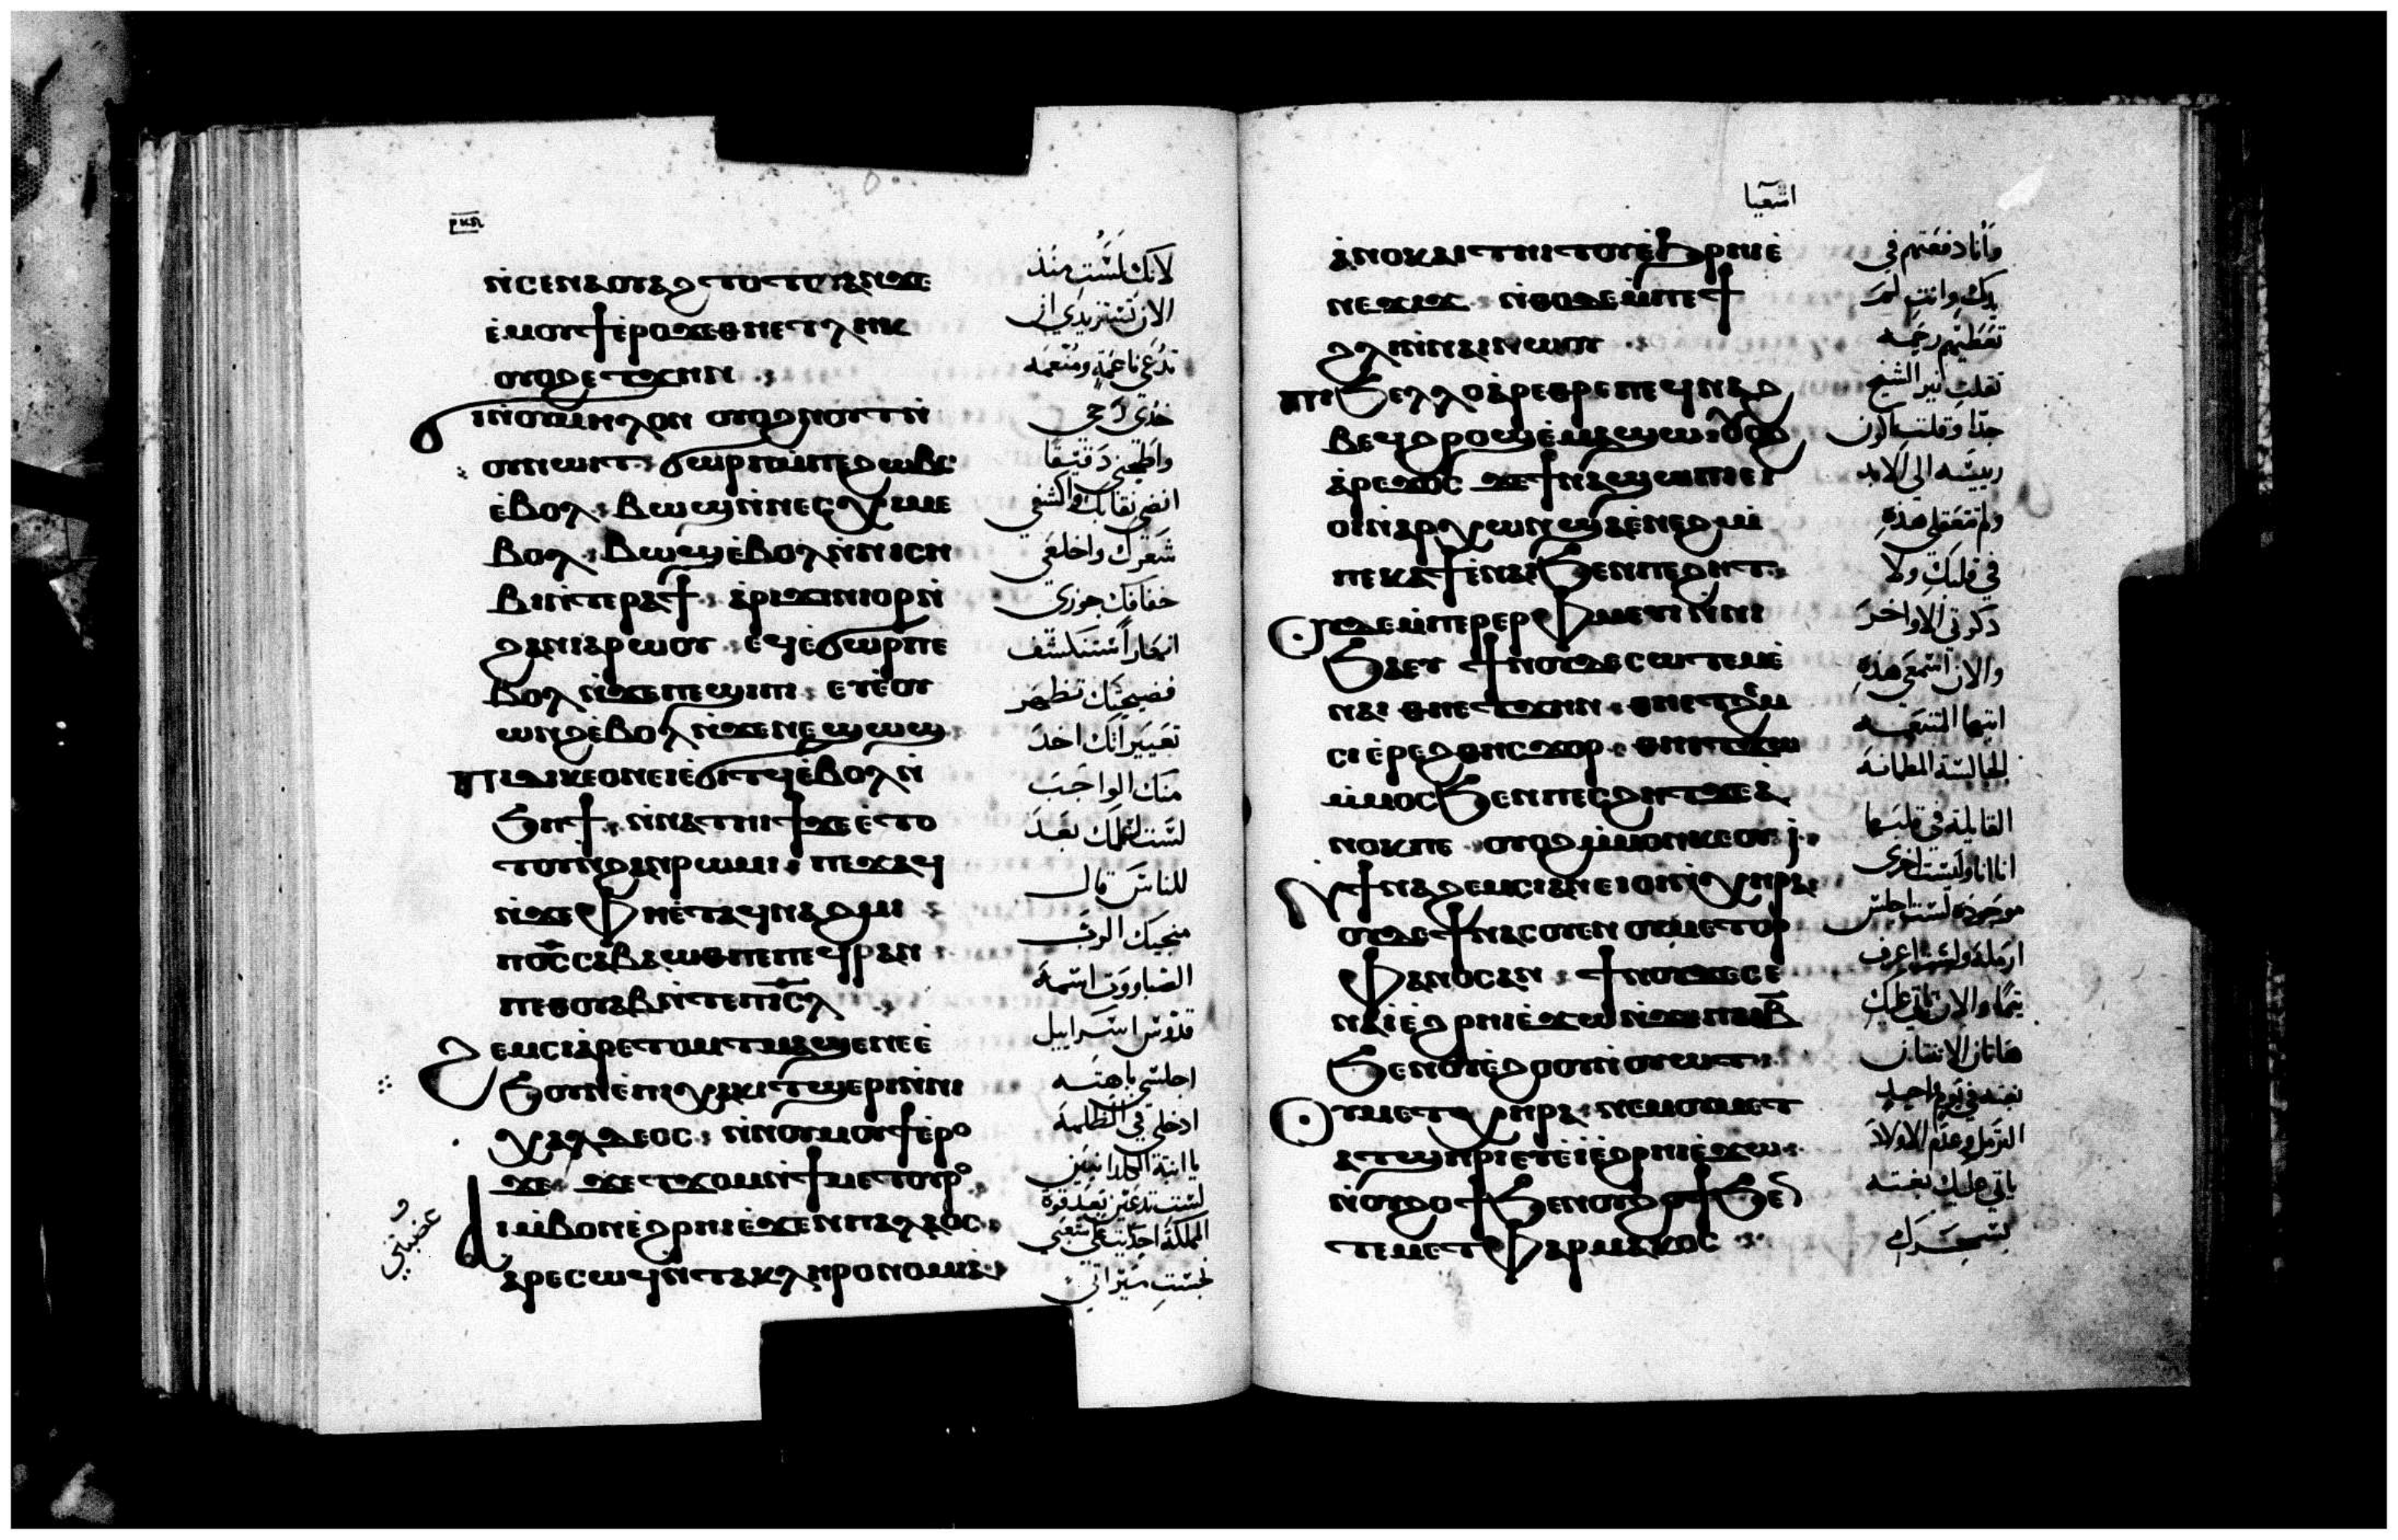 ⲛ̀ⲥⲉⲛⲁⲟⲩⲁϩⲧⲟⲧⲟⲩⲁⲛϫⲉ
ⲉ̀ⲙⲟⲩϯⲉ̀ⲣⲟϫⲉⲑⲛⲉⲧϫⲏⲛ
ⲟⲩⲟϩⲉⲧϫⲏⲛ
ϭⲓⲛ̀ⲟⲩⲙⲏⲭⲟⲛ ⲟⲩⲟϩⲛⲟⲩⲧⲛ̀
ⲟⲩⲛⲱⲓⲧ ϭⲱⲣⲡⲙ̀ⲡⲉϩⲱⲃⲥ
ⲉ̀ⲃⲟⲗ ⲃⲱϣⲛ̀ⲛⲉⲥⲭⲓⲙⲉ
ⲃⲟⲗ ⲃⲱϣⲉ̀ⲃⲟⲗⲛ̀ⲛⲓⲥⲏ
ⲃⲓⲛ̀ⲧⲉⲣⲁϯ ⲁⲣⲓϫⲓⲛⲓⲟⲣⲛ̀
ϩⲁⲛⲓⲁⲣⲱⲟⲩ ⲉϥⲉ̀ϭⲱⲣⲡⲉ
ⲃⲟⲗⲛ̀ϫⲉⲡⲉϣⲓⲡⲓ ⲉⲧⲉ̀ⲟⲩ
ⲱⲛϩⲉ̀ⲃⲟⲗⲛ̀ϫⲉⲛⲉϣⲱϣ
ⲡⲓⲇⲓⲕⲉⲟⲛⲉⲓⲉ̀ϭⲓⲧϥⲉ̀ⲃⲟⲗⲛ̀
ϧⲏϯ ⲛ̀ⲛⲁⲧⲏⲓϯϫⲉⲉ̀ⲧⲟ
ⲧⲟⲩⲛ̀ϩⲁⲛⲣⲱⲙⲓ ⲡⲉϫⲁϥ
ⲛ̀ϫⲉⲫⲏⲉ̀ⲧⲁϥⲛⲁϩⲙⲓ
ⲡⲟ̅ⲥ̅ⲥⲁⲃⲁⲱⲑⲡⲉⲡⲉϥⲣⲁⲛ
ⲡⲉⲑⲟⲩⲁⲃⲛ̀ⲧⲉⲡⲓ̅ⲥ̅ⲗ̅
ϩⲉⲙⲥⲓⲁ̀ⲣⲉⲧⲟⲙⲧⲙⲁϣⲉⲛⲉⲉ̀
ϧⲟⲩⲛⲉ̀ⲡⲓⲭⲁⲕⲓⲧϣⲉⲣⲓⲛ̀ⲛⲓ
ⲭⲁⲗⲇⲉⲟⲥ ⲛ̀ⲛⲟⲩⲙⲟⲩϯⲉ̀ⲣⲟ
ϫⲉ ϫⲉⲧϫⲟⲙⲛ̀ϯⲙⲉⲧⲟⲩⲣⲟ
ⲁⲓⲙ̀ⲃⲟⲛⲉ̀ϩⲣⲏⲓⲉ̀ϫⲉⲛⲡⲁⲗⲁⲟⲥ
ⲁⲣⲉⲥⲱϥⲛ̀ⲧⲁⲕⲗⲏⲣⲟⲛⲟⲙⲓⲁ
لانك لست منذ
الان تستزيدي ان
تدعي ناعمة ومنعمه
خذي رحي
واطحني دقيقا
انضي نقابك واكشفي
شعرك واخلعي
خفافك جوزي
انهاراً ستنكشف
فضيحتك تظهر
تعييراتك اخذ
منك الواجب
لست اسلمك بعد
للناس قال
منجيك الرب
الصاباووت اسمه
قدوس اسراييل
اجلسي باهته
ادخلي في الظلمه
يا ابنة الكلدانيين
لست تدعين بعد قوة
المملكة احتديت علي شعبي
نجست ميراثي
و
عضبتي
اشعيا
ⲁ̀ⲛⲟⲕⲁⲓⲧⲏⲓⲧⲟⲩⲉ̀ϧⲣⲏⲓⲉ̀
ⲛⲉϫⲓϫ ⲛ̀ⲑⲟⲇⲉⲙ̀ⲡⲉϯ
ϩⲗⲓⲛ̀ⲛⲁⲓⲛⲱⲟⲩ
ⲡⲓϧⲉⲗⲗⲟⲁ̀ⲣⲉⲑⲣⲉⲡⲉϥⲛⲁϩ
ⲃⲉϥϩⲣⲟϣⲉ̀ⲙⲁϣⲱ ⲟⲩⲟϩ
ⲁ̀ⲣⲉϫⲟⲥ ϫⲉϯⲛⲁϣⲱⲡⲓⲉⲓ
ⲟⲓⲛ̀ⲁⲣⲭⲱⲛϣⲁⲉ̀ⲛⲉϩ ⲙ̀
ⲡⲉⲕⲁϯⲉ̀ⲛⲁⲓϧⲉⲛⲡⲉϩⲏⲧ
ⲟⲩⲇⲉⲙ̀ⲡⲉⲣⲉⲣⲫⲙⲉⲩⲓ̀ⲛ̀ⲛⲓ
ϧⲁⲉⲩ ϯⲛⲟⲩⲇⲉⲥⲱⲧⲉⲙⲉ̀
ⲛⲁⲓ ⲑⲏⲉⲧϫⲏⲛ ⲑⲏⲉⲧϩⲉⲙ
ⲥⲓⲉ̀ⲣⲉϩⲑⲏⲥⲭⲟⲣ ⲑⲏⲉⲧϫⲱ
ⲙ̀ⲙⲟⲥϧⲉⲛⲡⲉⲥϩⲏⲧϫⲉⲁ
ⲛⲟⲕⲡⲉ ⲟⲩⲟϩⲙ̀ⲙⲟⲛⲕⲉⲟⲩⲓ̀
ⲛ̀ϯⲛⲁϩⲉⲙⲥⲓⲁⲛⲉⲓⲟⲓⲛ̀ⲭⲏⲣⲁ
ⲟⲩⲇⲉϯⲛⲁⲥⲟⲩⲉⲛ ⲟⲩⲙⲉⲧⲟⲣ
ⲫⲁⲛⲟⲥⲁⲛ ϯⲛⲟⲩϫⲉⲥⲉ
ⲛⲁⲓ̀ⲉ̀ϩⲣⲏⲓⲉ̀ϫⲱⲛ̀ϫⲉⲡⲁⲓⲃ̅
ϧⲉⲛⲟⲩⲉ̀ϩⲟⲟⲩⲛ̀ⲟⲩⲱⲧ
ⲟⲩⲙⲉⲧⲭⲏⲣⲁ ⲛⲉⲙⲟⲩⲙⲉⲧ
ⲁⲧϣⲏⲣⲓⲉⲧⲉ̀ⲓ̀ⲉ̀ϩⲣⲏⲓⲉ̀ϫⲱ
ⲛ̀ⲟⲩϩⲟϯϧⲉⲛⲟⲩϩⲟϯϧⲉⲛ
ⲧⲉⲙⲉⲧⲫⲁⲣⲙⲁⲕⲟⲥ
وانا دفعتهم في
يدك وانت لم
تعطيهم رحمه
ثقلت نير الشيخ
جدًا وقلت اكون
رييسه الي الابد
ولم تعقلي هذه
في قلبك ولا
ذكرتي الاواخر
والان اسمعي هذه
ايتها المتنعمه
الجالسة المطمانه
القايلة في قلبها
انا انا وليست اخرى
موجوده لست اجلس
ارملة ولست اعرف
يتما والان تاتي عليك
هاتان الاثنتان
بغته في يوم واحد
الترمل وعدم الاولاد
ياتي عليك بغته
بسحرك